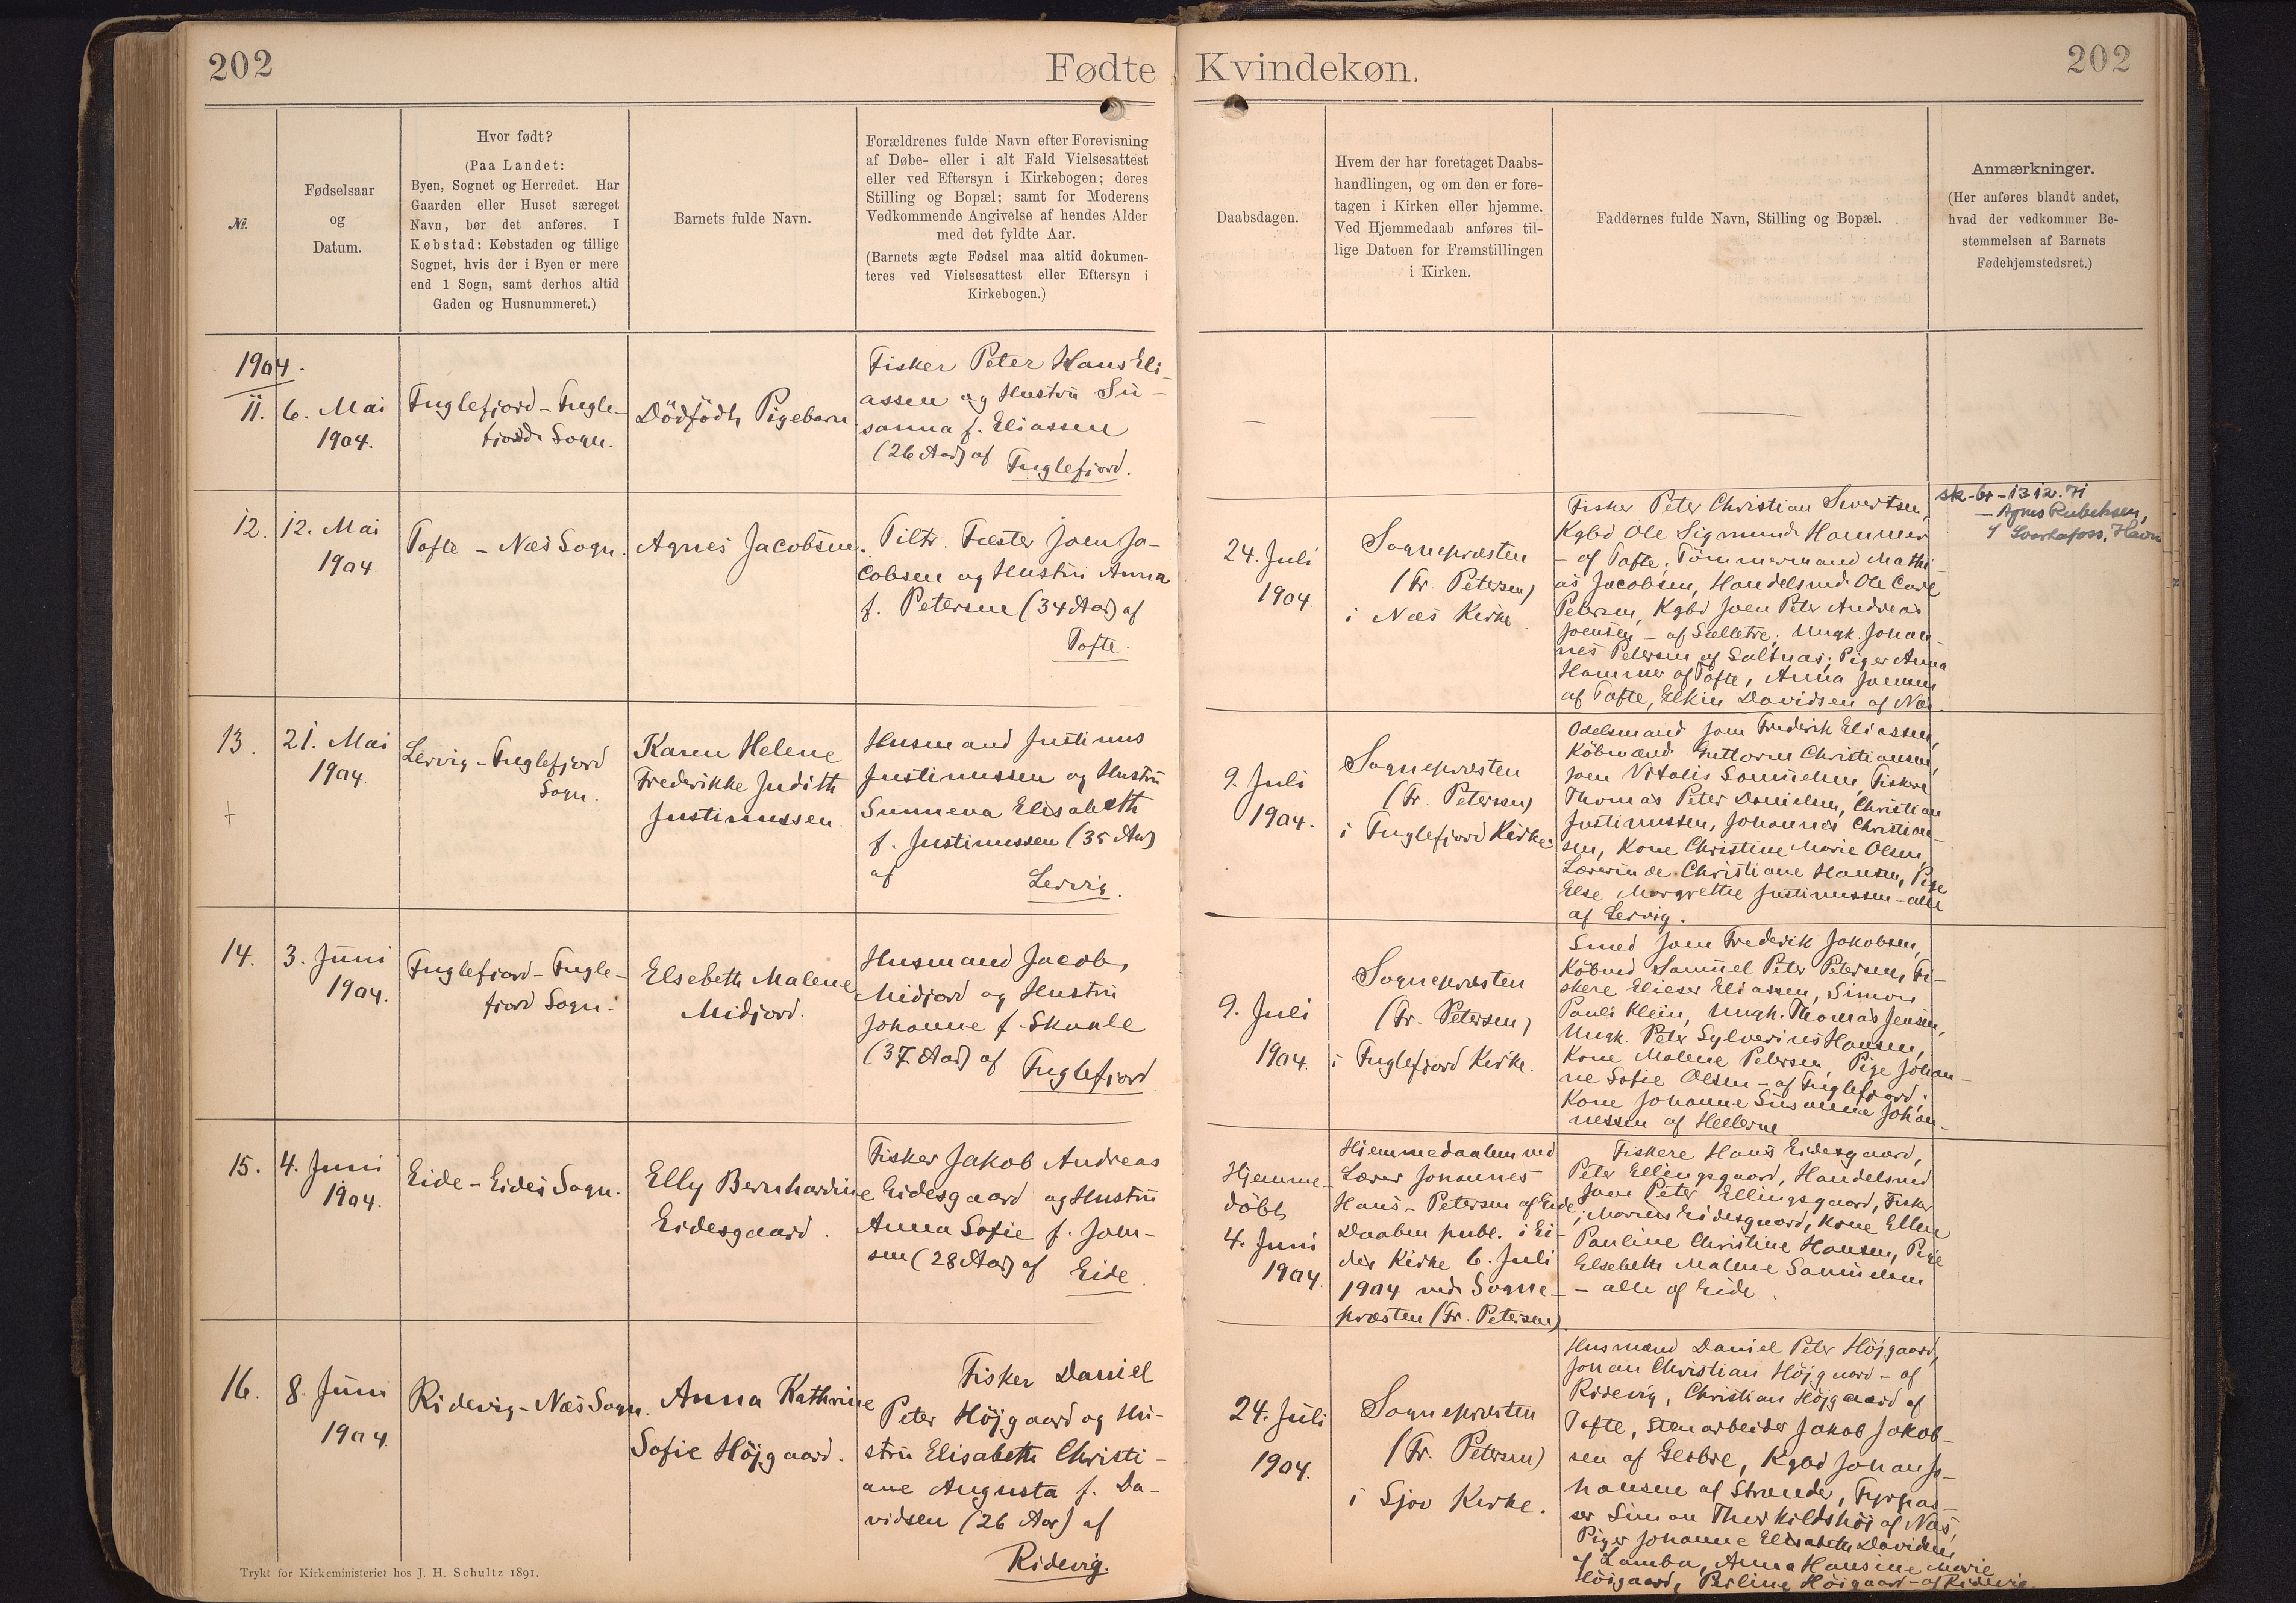 202
Fødte
Kvindekøn.
202
№.
Fødselsaar
og
Datum.
Hvor født?
(Paa Landet:
Byen, Sognet og Herredet. Har
Gaarden eller Huset særeget
Navn, bør det anføres. I
Købstad: Købstaden og tillige
Sognet, hvis der i Byen er mere
end 1 Sogn, samt derhos altid
Gaden og Husnummeret.)
Barnets fulde Navn.
Forældrenes fulde Navn efter Forevisning
af Døbe- eller i alt Fald Vielsesattest
eller ved Eftersyn i Kirkebogen; deres
Stilling og Bopæl; samt for Moderens
Vedkommende Angivelse af hendes Alder
med det fyldte Aar.
(Barnets ægte Fødsel maa altid dokumen-
teres ved Vielsesattest eller Eftersyn i
Kirkebogen.)
Daabsdagen.
Hvem der har foretaget Daabs-
handlingen, og om den er fore-
tagen i Kirken eller hjemme.
Ved Hjemmedaab anføres til-
lige Datoen for Fremstillingen
i Kirken.
Faddernes fulde Navn, Stilling og Bopæl.
Anmærkninger.
(Her anføres blandt andet,
hvad der vedkommer Be-
stemmelsen af Barnets
Fødehjemstedsret.)
1904.
11.
6. Mai
1904.
Fuglefjord - Fugle-
fjords Sogn.
Dödfödt Pigebarn
Fisker Peter Hans Eli-
assen og Hustru Su-
sanna f. Eliassen
(26 Aar) af
Fuglefjord.
—
—
12.
12. Mai
1904.
Tofte - Næs Sogn.
Agnes Jacobsen.
Tiltr. Fæster Joen Ja-
cobsen og Hustru Anna
f. Petersen (34 Aar) af
Tofte.
24. Juli
1904.
Sognepræsten
(Fr. Petersen)
i Næs Kirke.
Fisker Peter Christian Sivertsen,
Kgbd Ole Sigmund Hammer
- af Tofte; Tömmermand Mathi-
as Jacobsen, Handelsmd. Ole Carl
Petersen, Kgbd Joen Peter Andreas
Joensen - af Salletre; Ungk. Johan-
nes Petersen af Saltnæs; Piger Anna
Hammer af Tofte, Anna Joensen
af Tofte, Elkin Davidsen af Næs.
sk-br-13.12.71
- Agnes Rubeksen,
Havn
13.
21. Mai
1904.
Lervig - Fuglefjord
Sogn.
Karen Helene
Frederikke Judith
Justinussen.
Husmand Justinus
Justinussen og Hustru
Sunneva Elisabeth
f. Justinussen (35 Aar)
af
Lervig.
9. Juli
1904.
Sognepræsten
(Fr. Petersen)
i Fuglefjord Kirke.
Odelsmand Joen Frederik Eliassen,
Köbmand Guttorm Christiansen,
Joen Vitalis Samuelsen, Fiskere
Thomas Peter Danielsen, Christian
Justinussen, Johannes Christian-
sen, Kone Christine Marie Olsen,
Lærerinde Christiane Hansen, Pige
Else Margrethe Justinussen - alle
af Lervig.
14.
3. Juni
1904.
Fuglefjord - Fugle-
fjord Sogn.
Elsebeth Malene
Midjord.
Husmand Jacob
Midjord og Hustru
Johanne f. Skaale
(37 Aar) af
Fuglefjord
9. Juli
1904.
Sognepræsten
(Fr. Petersen)
i Fuglefjord Kirke.
Smed Joen Frederik Jakobsen,
Köbmd Samuel Peter Petersen, Fi-
skere Elieser Eliassen, Simon
Pauli Klein, Ungk. Thomas Jensen,
Ungk. Peter Sylverius Hansen,
Kone Malene Petersen, Pige Johan-
ne Sofie Olsen - af Fuglefjord;
Kone Johanne Susanne Johan-
nessen af Hellerne
15.
4. Juni
1904.
Eide - Eides Sogn.
Elly Bernhardine
Eidesgaard.
Fisker Jakob Andreas
Eidesgaard og Hustru
Anna Sofie f. Joen-
sen (28 Aar) af
Eide.
Hjemme-
döbt
4. Juni
1904.
Hjemmedaaben ved
Lærer Johannes
Hans- Petersen af Eide;
Daaben publ. i Ei-
des Kirke 6. Juli
1904 ved Sogne-
præsten (Fr. Petersen).
Fiskere Hans Eidesgaard,
Peter Ellingsgaard, Handelsmd
Joen Peter Ellingsgaard, Fisker
Marius Eidesgaard, Kone Ellen
Pauline Christine Hansen, Pige
Elsebeth Malene Samuelsen
- alle af Eide.
16.
8. Juni
1904.
Ridevig - Næs Sogn.
Anna Kathrine
Sofie Höjgaard.
Fisker Daniel
Peter Höjgaard og Hu-
stru Elisabeth Christi-
ane Augusta f. Da-
vidsen (26 Aar) af
Ridevig.
24. Juli
1904.
Sognepræsten
(Fr. Petersen)
i Sjov Kirke.
Husmand Daniel Peter Höjgaard,
Johan Christian Höjgaard - af
Ridevig, Christian Höjgaard af
Tofte, Stenarbeider Jakob Jakob-
sen af Glibre, Kgbd Johan Jo-
hansen af Strænder, Fyrpas-
ser Simon Therkildshöj af Næs,
Piger Johanne Elisabeth Davidsen
af Lamba, Anna Hansine Marie
Höigaard, Perline Höigaard - af Ridevig.
Trykt for Kirkeministeriet hos J. H. Schultz 1891.